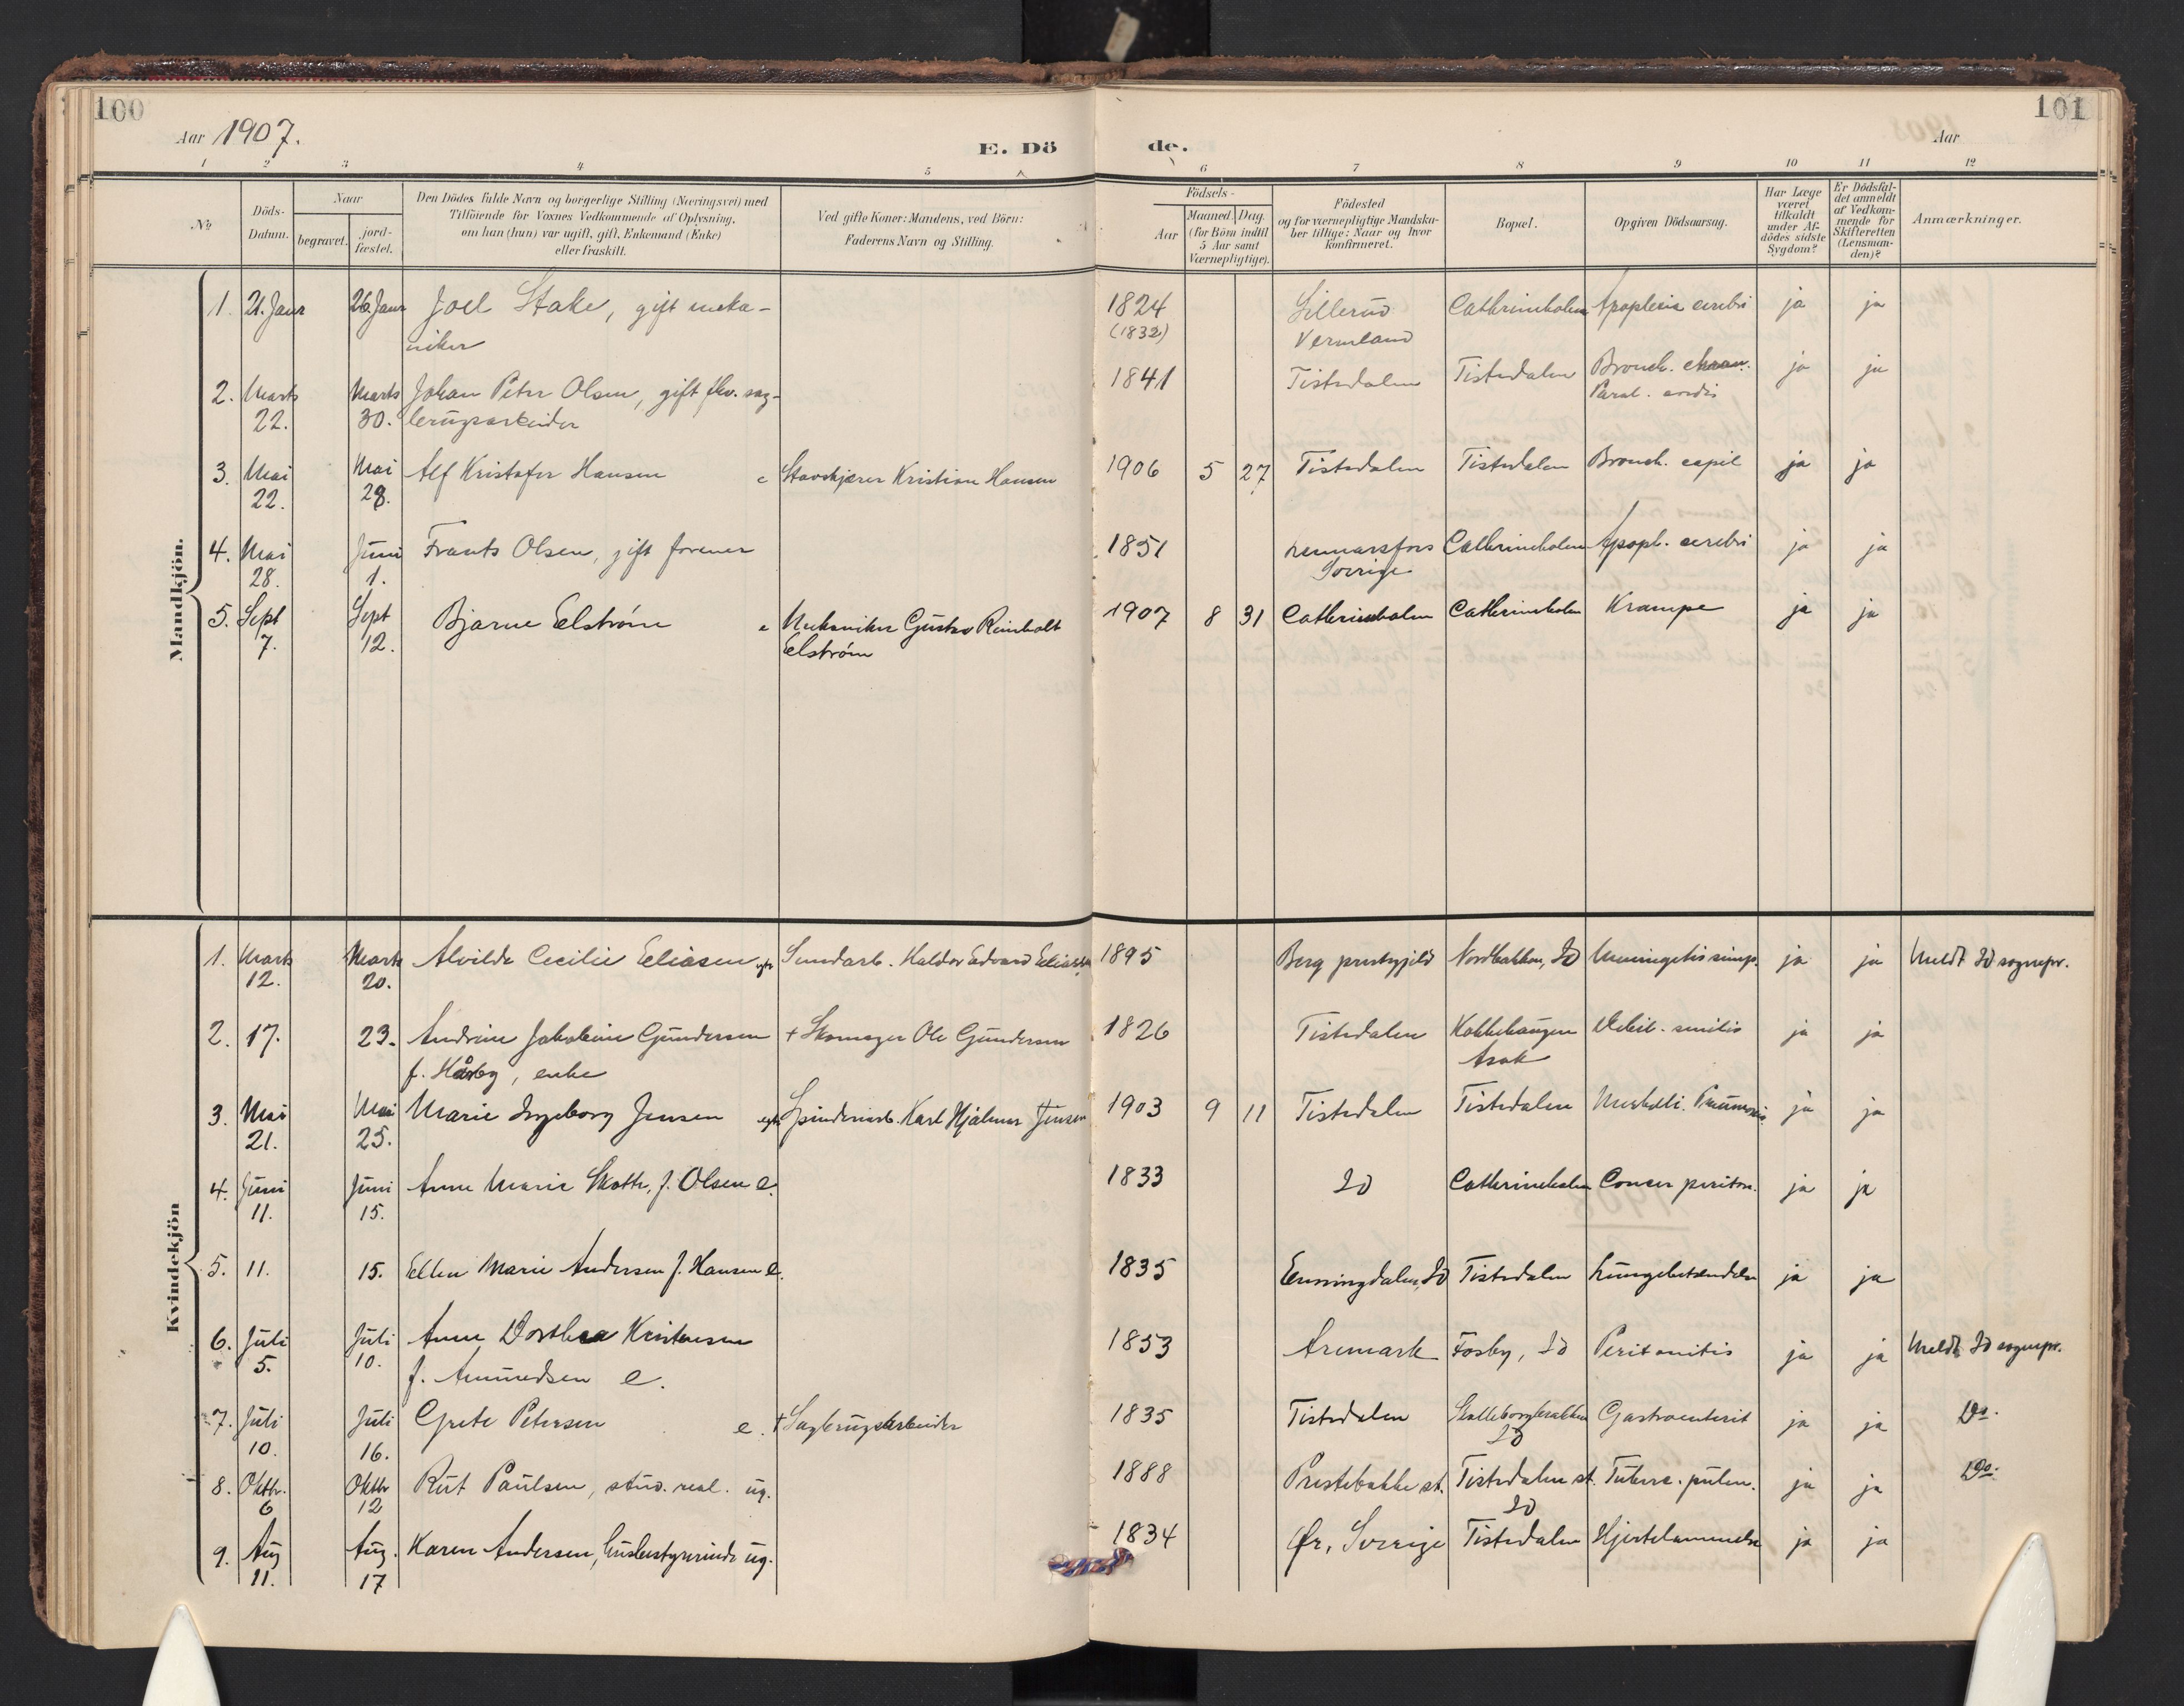 100
101
Aar 1907.
E. Dö de.
Aar
1 2 3 4 5 6 7 8 9 10 11 12
No
Döds-Datum.
Naar
begravet.
jord-fæstet.
Den Dödes fulde Navn og borgerlige Stilling (Næringsvei) med
Tilföiende for Voxnes Vedkommende af Oplysning,
om han (hun) var ugift, gift, Enkemand (Enke)
eller fraskilt.
Ved gifte Koner: Mandens, ved Börn:
Faderens Navn og Stilling.
Födsels-
Aar
Maaned. Dag.
(for Börn indtil
5 Aar samt
Værnepligtige).
Födested
og for værnepligtige Mandska-
ber tillige: Naar og hvor
konfirmeret.
Bopæl.
Opgiven Dödsaarsag.
Har Læge
været
tilkaldt
under Af-
dödes sidste
Sygdom?
Er Dödsfal-
det anmeldt
af Vedkom-
mende for
Skifteretten
(Lensman-
den)?
Anmærkninger.
Mandkjön.
1. 21. Janr 26 Janr Joel Stake, gift meka- 1824 Sillerud Cathrineholm Apoplexia cerebri ja ja
niker (1832) Vermland
2. Marts Marts Johan Peter Olsen, gift fhv. sag- 1841 Tistedalen Tistedalen Bronch. ja ja
22. 30. brugsarbeider Paral. cordis
3. Mai Mai Alf Kristofer Hansen e Kristian Hansen 1906 5 27 Tistedalen Tistedalen Bronch. capil ja ja
22. 28.
4. Mai Juni Frants Olsen, gift formen 1851 Lennarsfors Cathrineholm Apopl. cerebri ja ja
28. 1. Sverige
5. Sept Sept Bjarne Elström e Mekaniker Gustav Reinholt 1907 8 31 Cathrineholm Cathrineholm Krampe ja ja
7. 12. Elström
Kvindekjön
1. Marts Marts Alvilde Cecilie Eliasen egte Haldor Edvard Eliasen 1895 Berg prestegjeld Nordbakken, Id Meningitis simp. ja ja Meldt Id sognepr.
12. 20.
2. 17. 23. Andrine Jakobine Gundersen + Skomager Ole Gundersen 1826 Tistedalen Kokkehaugen Debil. senilis ja ja
f. Håreby, enke Asak
3. Mai Mai Marie Ingeborg Jensen egte Spinderiarb. Karl Hjalmar Jensen 1903 9 11 Tistedalen Tistedalen Morbilli. Pneumoni ja ja
21. 25.
4. Juni Juni Anne Marie Skotte, f. Olsen e. 1833 Id Cathrineholm Cancer periton. ja ja
11. 15.
5. 11. 15. Ellen Marie Andersen f. Hansen e. 1835 Enningdalen, Id Tistedalen Lungebetændelse ja ja
6. Juli Juli Anne Dorthea Kristensen 1853 Aremark Fosby, Id Peritonitis ja ja Meldt Id sognepr.
5. 10. f. Amundsen e.
7. Juli Juli Grete Petersen e. + Sagbrugsarbeider 1835 Tistedalen Skolleborgbakken Gastroenterit ja ja Do.
10. 16. Id
8. Oktbr. Oktbr Rut Paulsen, stud. real. ug. 1888 Prestebakke st. Tistedalen st. Tuberc. pulm. ja ja Do.
6 12 Id
9. Aug Aug. Karen Andersen, husbestyrerinde ug. 1834 Ør, Sverige Tistedalen Hjertelammelse ja ja
11. 17